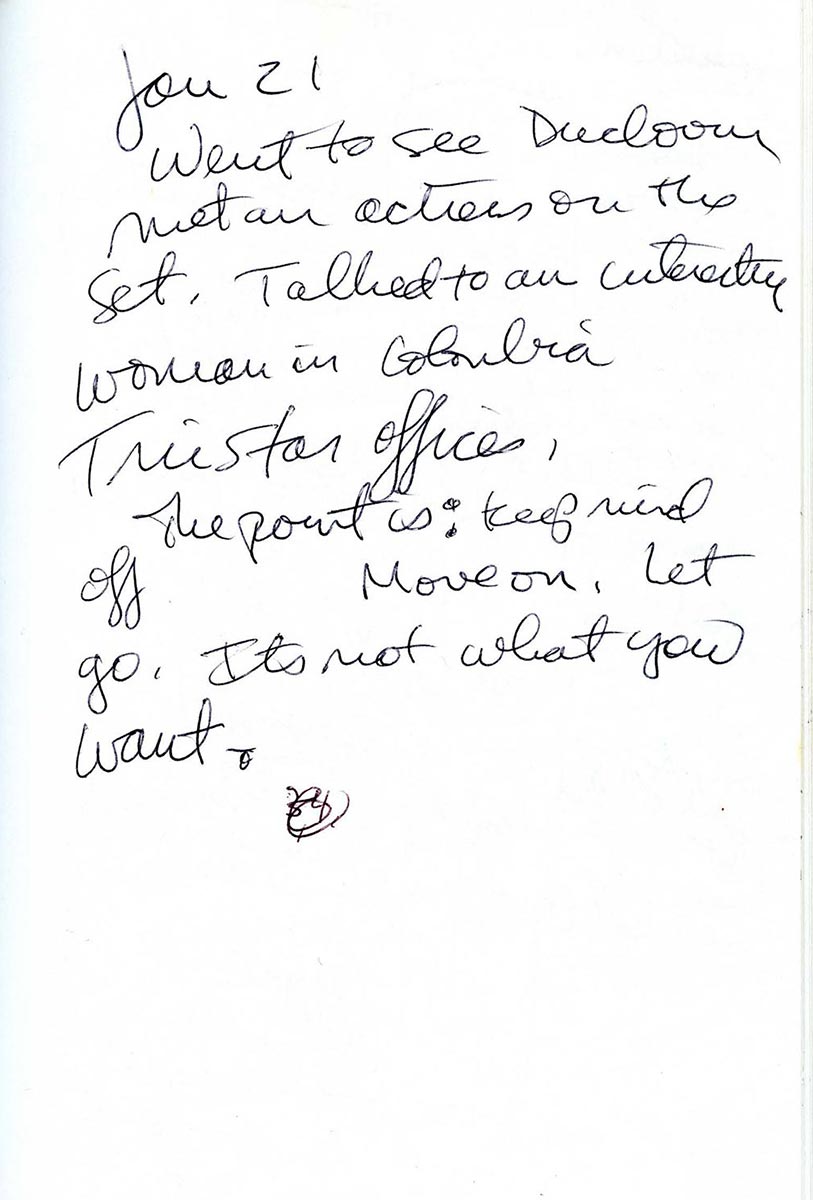 Jan 21
Went to see
met an actress on the
set. Talked to an interesting
woman in Colombia
Tristar offices,
The point is: keep mind
off Move on. Let
go. Its not what you
want.